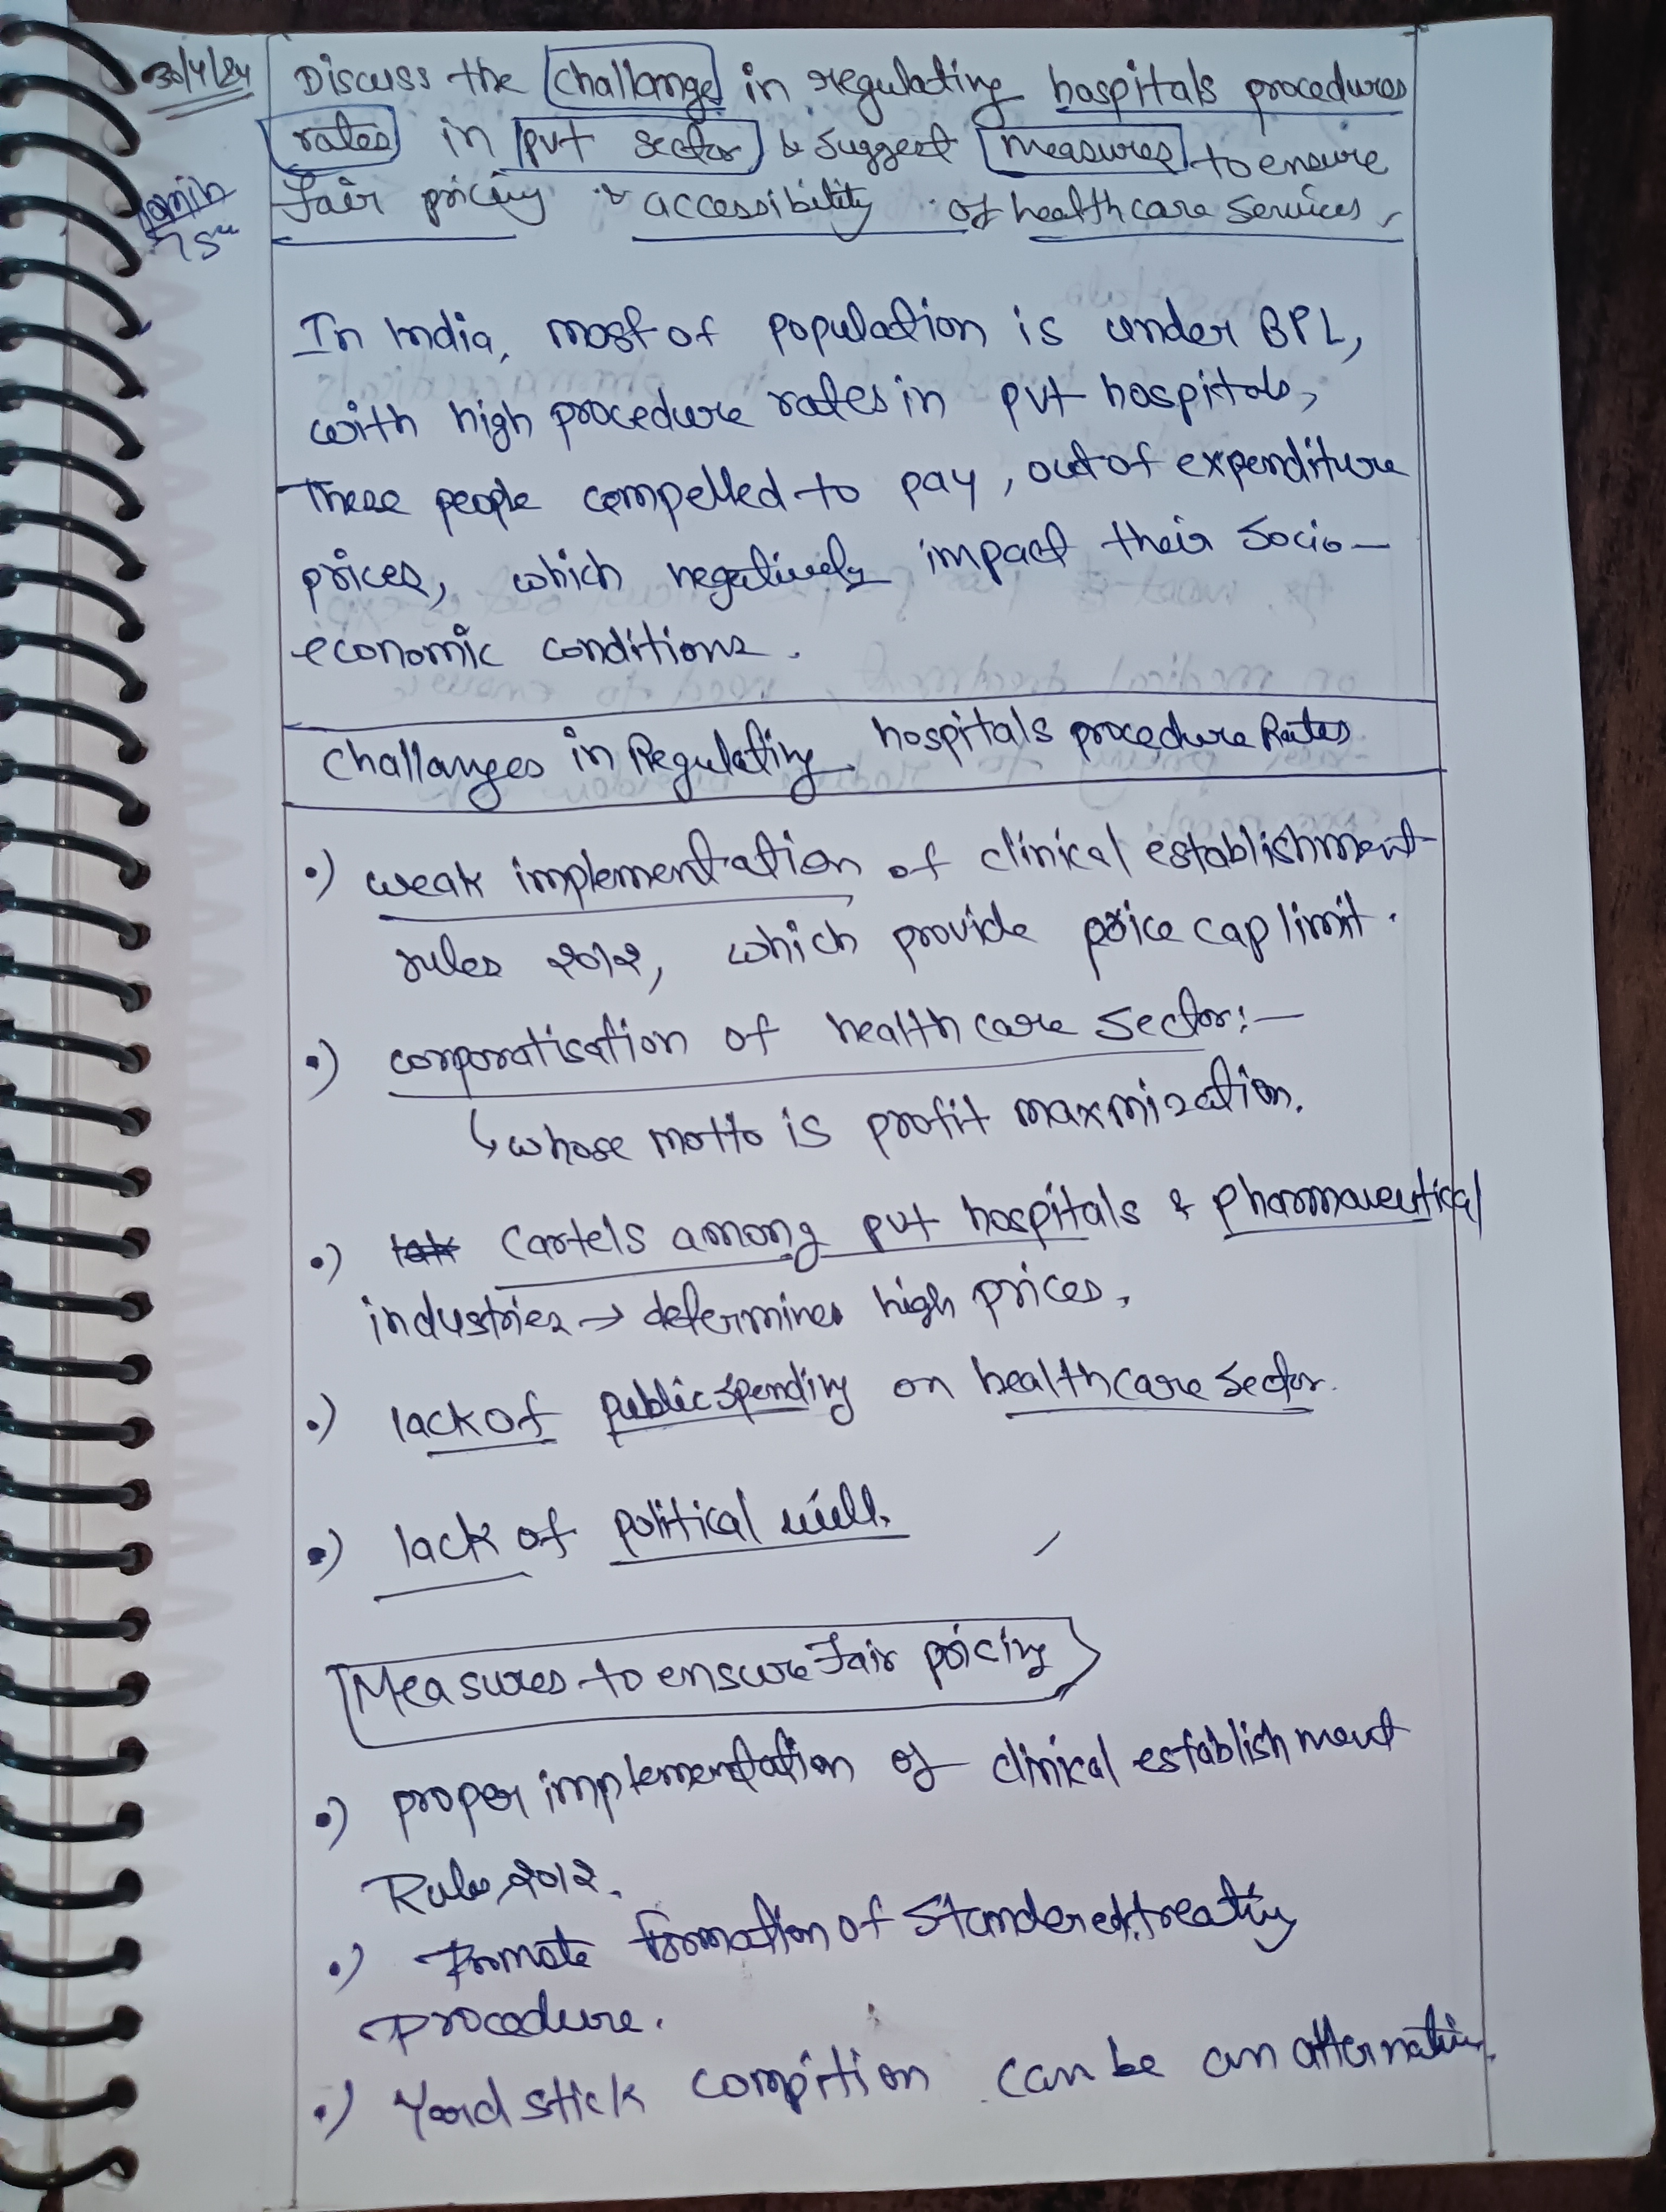 30/4/24
Discuss the challange in regulating hospitals procedures
rates in pvt sector & suggest measures to ensure
fair pricing & accessibility of healthcare services.
10 min
7 5"
In India, most of population is under BPL,
with high procedure rates in pvt hospitals,
These people compelled to pay, out of expenditure
prices, which negatively impact their socio-
economic conditions.
Challanges in Regulating hospitals procedure Rates
•) weak implementation of clinical establishment
rules 2012, which provide price cap limit.
•) corporatisation of health care sector:-
↳ whose motto is profit maxmization.
•) Cartels among pvt hospitals & pharmaceutical
industries → determines high prices,
•) lack of public spending on healthcare sector.
•) lack of political will.
Measures to ensure fair pricing
•) proper implementation of clinical establishment
Rules, 2012.
•) Promote formation of Standered treating
procedure.
•) Yard stick compition can be an alternative.